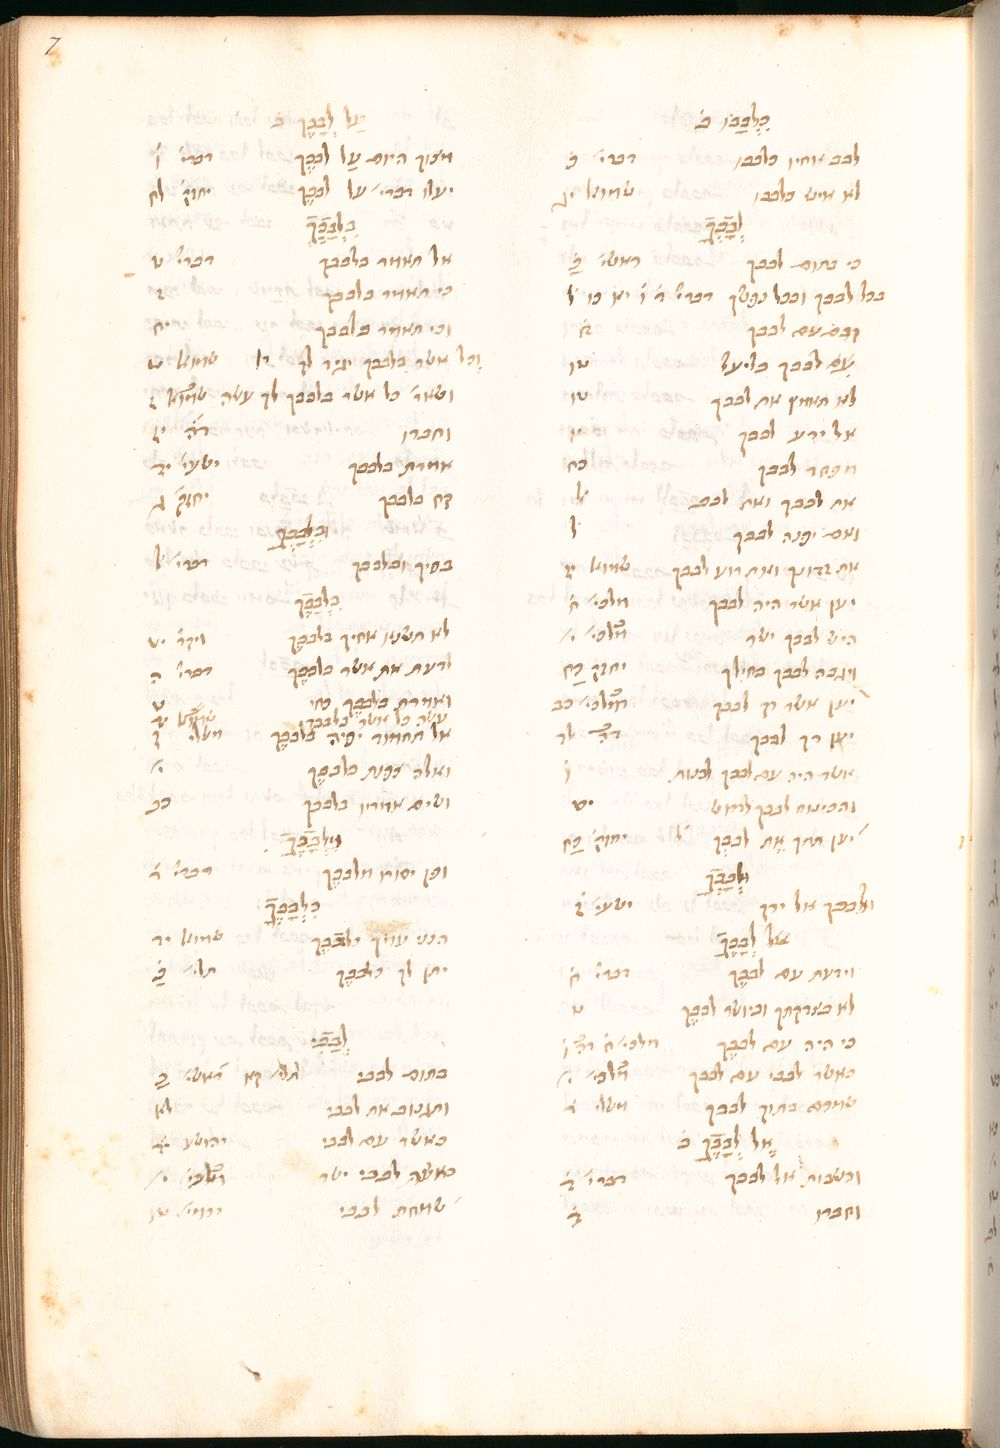 7
כִּלְבָבוֹ ב
לבב אחיו כלבבו דברי׳ כ
לא איש כלבבו שמואל יג
לְבָבְךָ
כי בתום לבבך ראשי׳ כ
בכל לבבך ובכל נפשך דברי׳ ד ו יא כו ל
עם לבבך
עם לבבך בליעל טו
לא תאמץ את לבבך טו
אל ירע לבבך
מפחד לבבך כח
את לבבך ואת לבב ל
ואם יפנה לבבך ל
את זדונך ואת רוע לבבך שמואל יז
יען אשר היה לבבך מלכי׳ ח
היש לבבך ישר מלכי׳ י
ויגבה לבבך בחילך יחזק׳ כח
יען אשר רך לבבך מלכי׳ כב
יען רך לבבך דה לד
אשר היה עם לבבך לבנות ו
והכינות לבבך לדרוש יט
יען תתך את לבבך יחזק׳ כח
וּלְבָבְךָ
ולבבך אל ירך ישעי׳ ז
עם לְבָבֶךָ
וידעת עם לבבך דברי׳ ח
לא בצדקתך וביושר לבבך ט
כי היה עם לבבך מלכי׳ ח דה ו
כאשר לבבי עם לבבך מלכי׳ י
שמרם בתוך לבבך משלי ד
אֶל לְבָבֶךָ ב
והשבות אל לבבך דברי׳ ד
וחברו
עַל לְבָבֶךָ ב
מצוך היום על לבבך דברי׳ ו
יעלו דברי׳ על לבבך יחזק׳ לח
בִּלְבָבְךָ
אל תאמר בלבבך דברי׳ ט
כי תאמר בלבבך ז
וכי תאמר בלבבך יח
וכל אשר בלבבך יגיד לך שמואל ט
ושאר׳ כל אשר בלבבך לך עשה שמואל ז
וחברו דה יז
אמרת בלבבך ישעי׳ יד
קח בלבבך יחזק׳ ג
וּבִלְבָבְךָ
בפיך ובלבבך דברי׳ ל
בִּלְבָבֶךָ
לא תשנא אחיך בלבבך ויקר׳ יט
לדעת את אשר בלבבך דברי׳ ח
ואמרת בלבבך כחי ט
עשה כל אשר בלבבך שמואל יד
אל תחמוד יפיה בלבבך משלי ו
ואלה צפנת בלבבך י
ושים אמריו בלבבך כב
מִלְּבָבְךָ
ופן יסורו מלבבך דברי׳ ד
כִּלְבָבֶךָ
הנני עמך כלבבך שמואל יד
יתן לך כלבבך תלי׳ כ
לְבָבִי
בתום לבבי תלי׳ קא ראשי׳ כ
ותגנוב את לבבי לא
כאשר עם לבבי יהושע יד
כאשר לבבי ישר מלכי׳ י
שמחת לבבי ירמי׳ טו